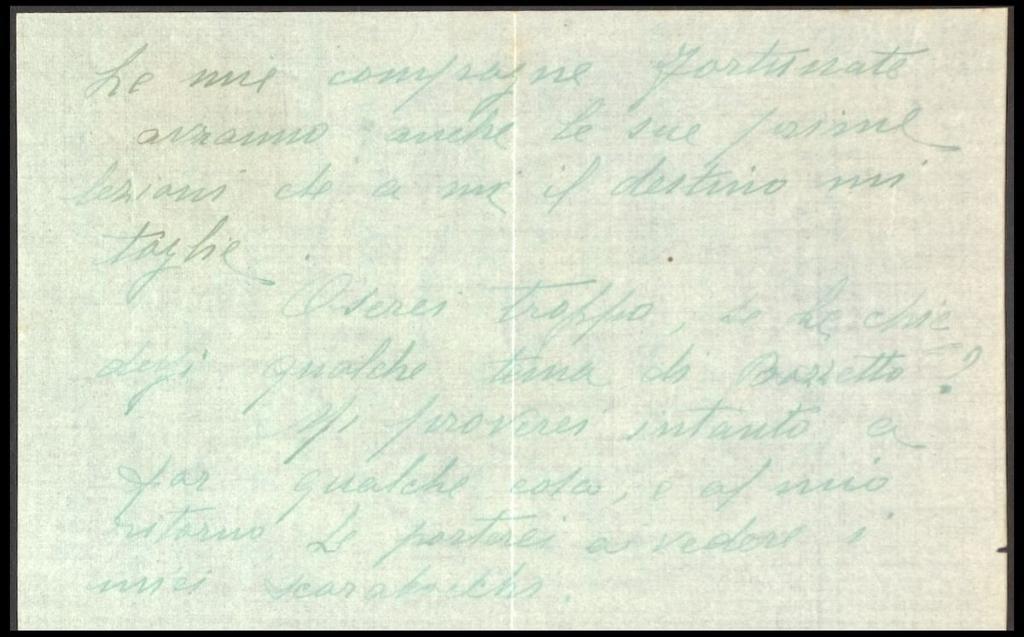 Le mie compagne fortunate
avranno anche le sue prime
lezioni che a me il destino mi
toglie.
Oserei troppo, se Le chie
dessi qualche tema di Bozzetto?
Mi proverei intanto a
far qualche cosa, e al mio
ritorno Le porterei a vedere i
miei scarabocchi.